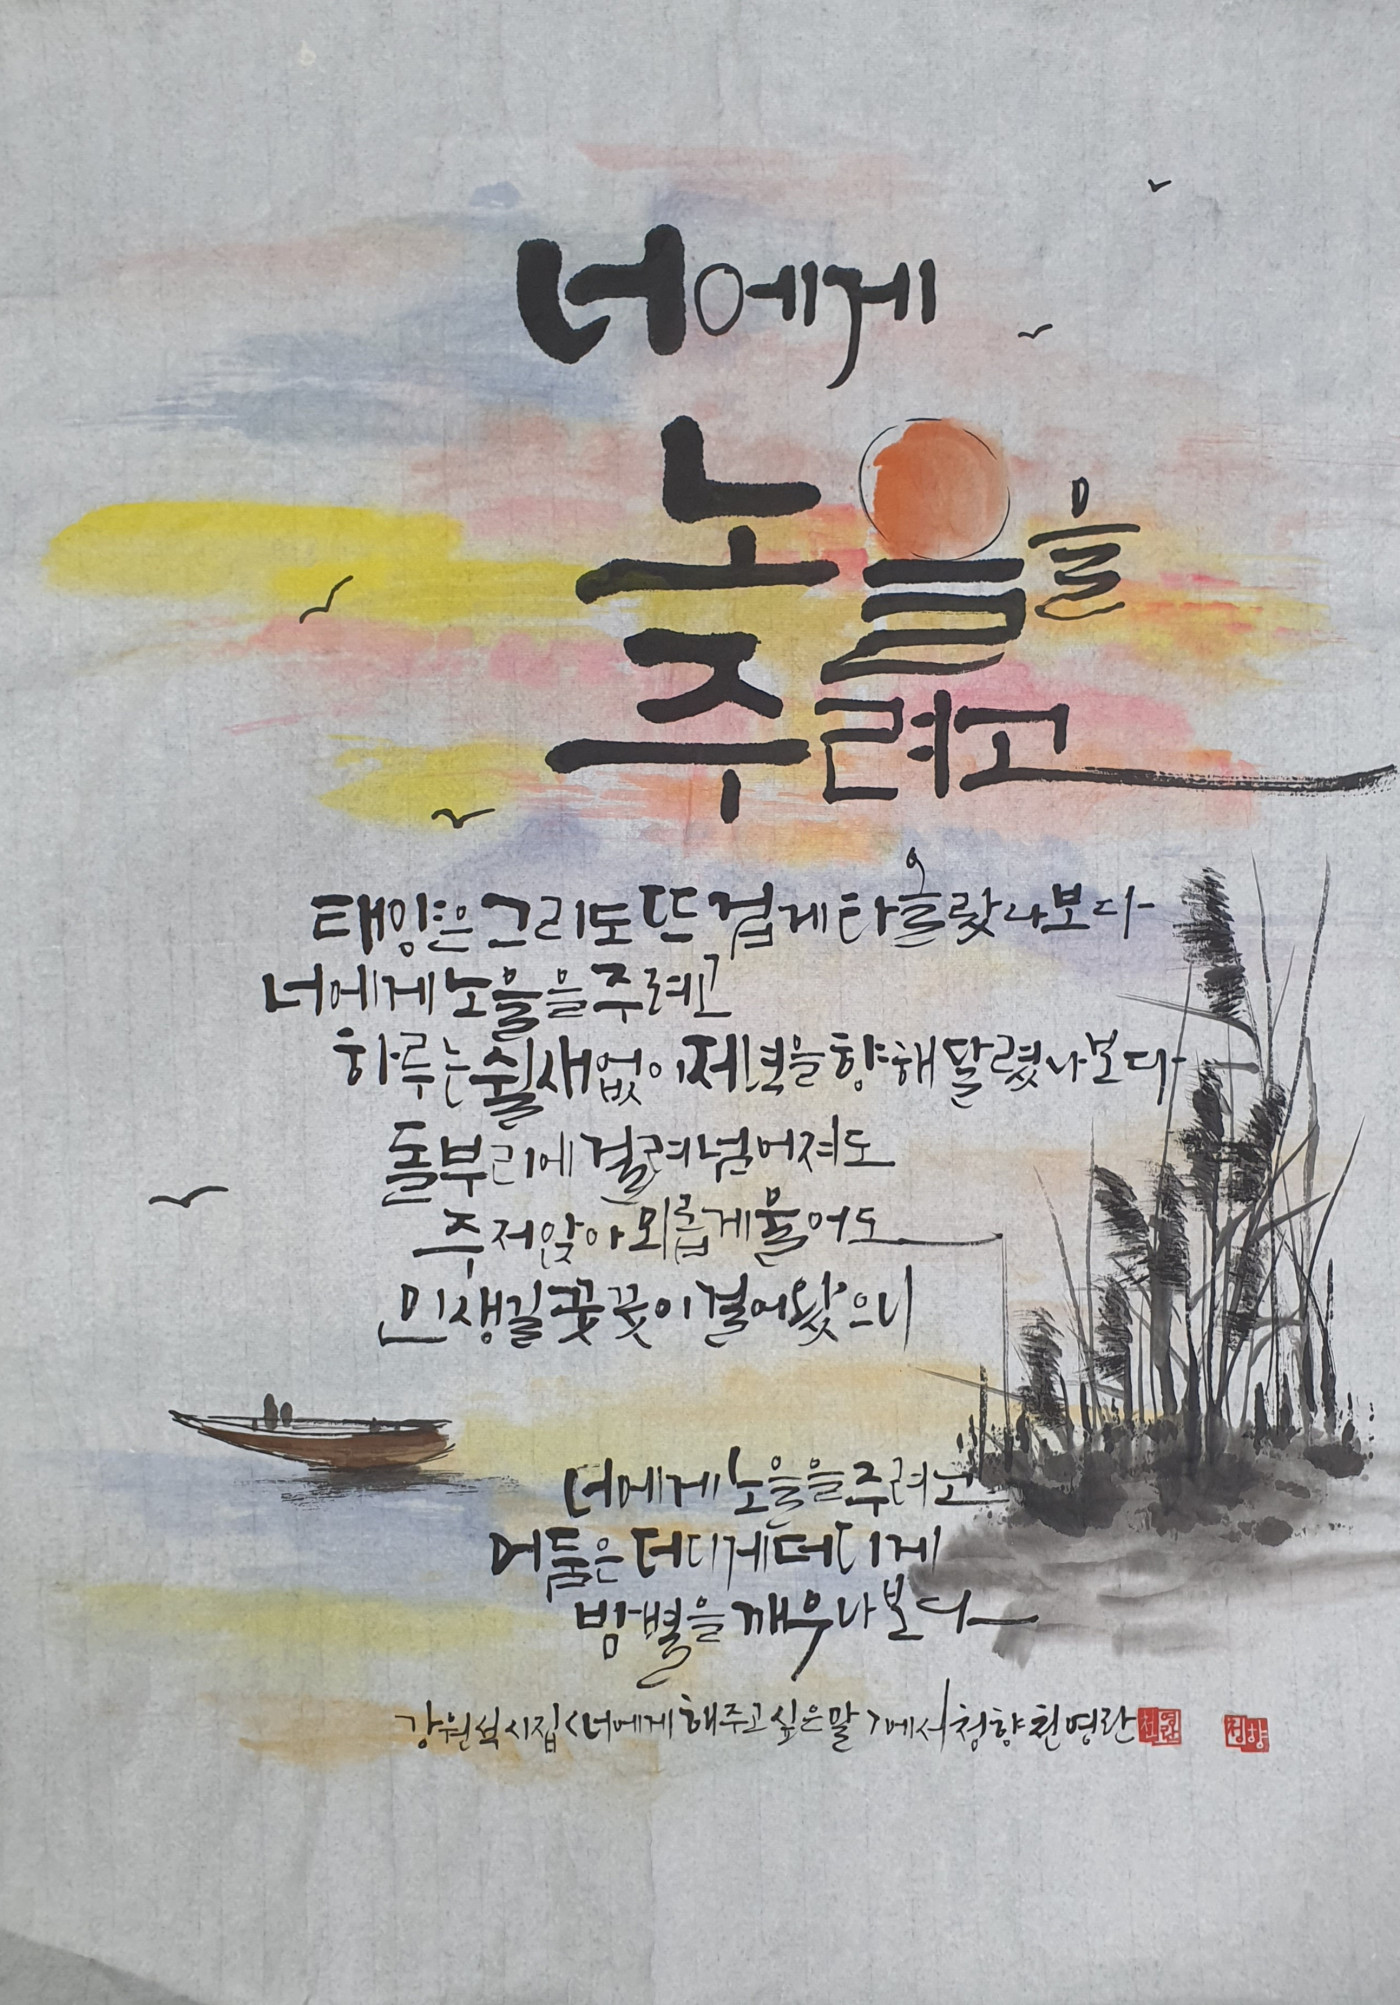 너에게
노을을
주려고
태양은 그리도 뜨겁게 타올랐나 보다
너에게 노을을 주려고
하루는 쉴새없이 저녁을 향해 달렸나 보다
돌부리에 걸려 넘어져도
주저앉아 외롭게 울어도
인생길 꿋꿋이 걸어왔으니
너에게 노을을 주려고
어둠은 더디게 더디게
밤별을 깨우나 보다
강원석 시집 <너에게 해주고 싶은 말>에서 청향 천영란
청향